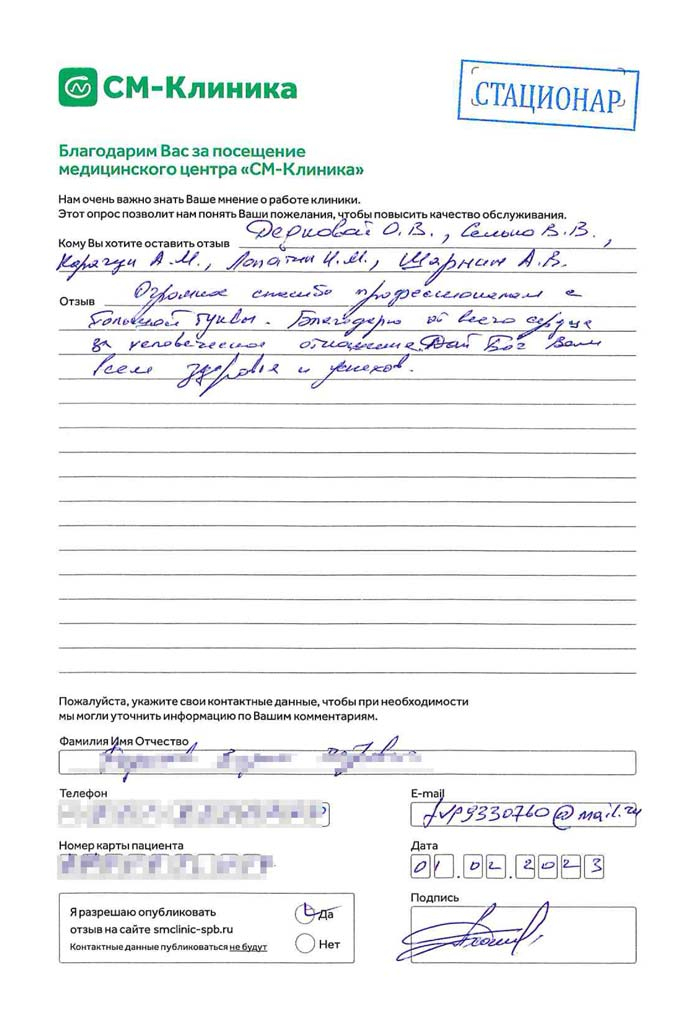 СМ-Клиника
СТАЦИОНАР
Благодарим Вас за посещение
медицинского центра «СМ-Клиника»
Нам очень важно знать Ваше мнение о работе клиники.
Этот опрос позволит нам понять Ваши пожелания, чтобы повысить качество обслуживания.
Кому Вы хотите оставить отзыв Дерковой О.В., Сенько В.В.,
Карачун А.М., Лопатин И.М., Шарнин А.В.
Отзыв Огромное спасибо профессионалам с
большой буквы. Благодарю от всего сердца
за человеческое отношение. Дай Бог Вам
всем здоровья и успехов.
Пожалуйста, укажите свои контактные данные, чтобы при необходимости
мы могли уточнить информацию по Вашим комментариям.
Фамилия Имя Отчество
Телефон
E-mail
jvp9330760@mail.ru
Номер карты пациента
Дата
01.02.2023
Я разрешаю опубликовать
отзыв на сайте smclinic-spb.ru
Контактные данные публиковаться не будут
Да
Нет
Подпись